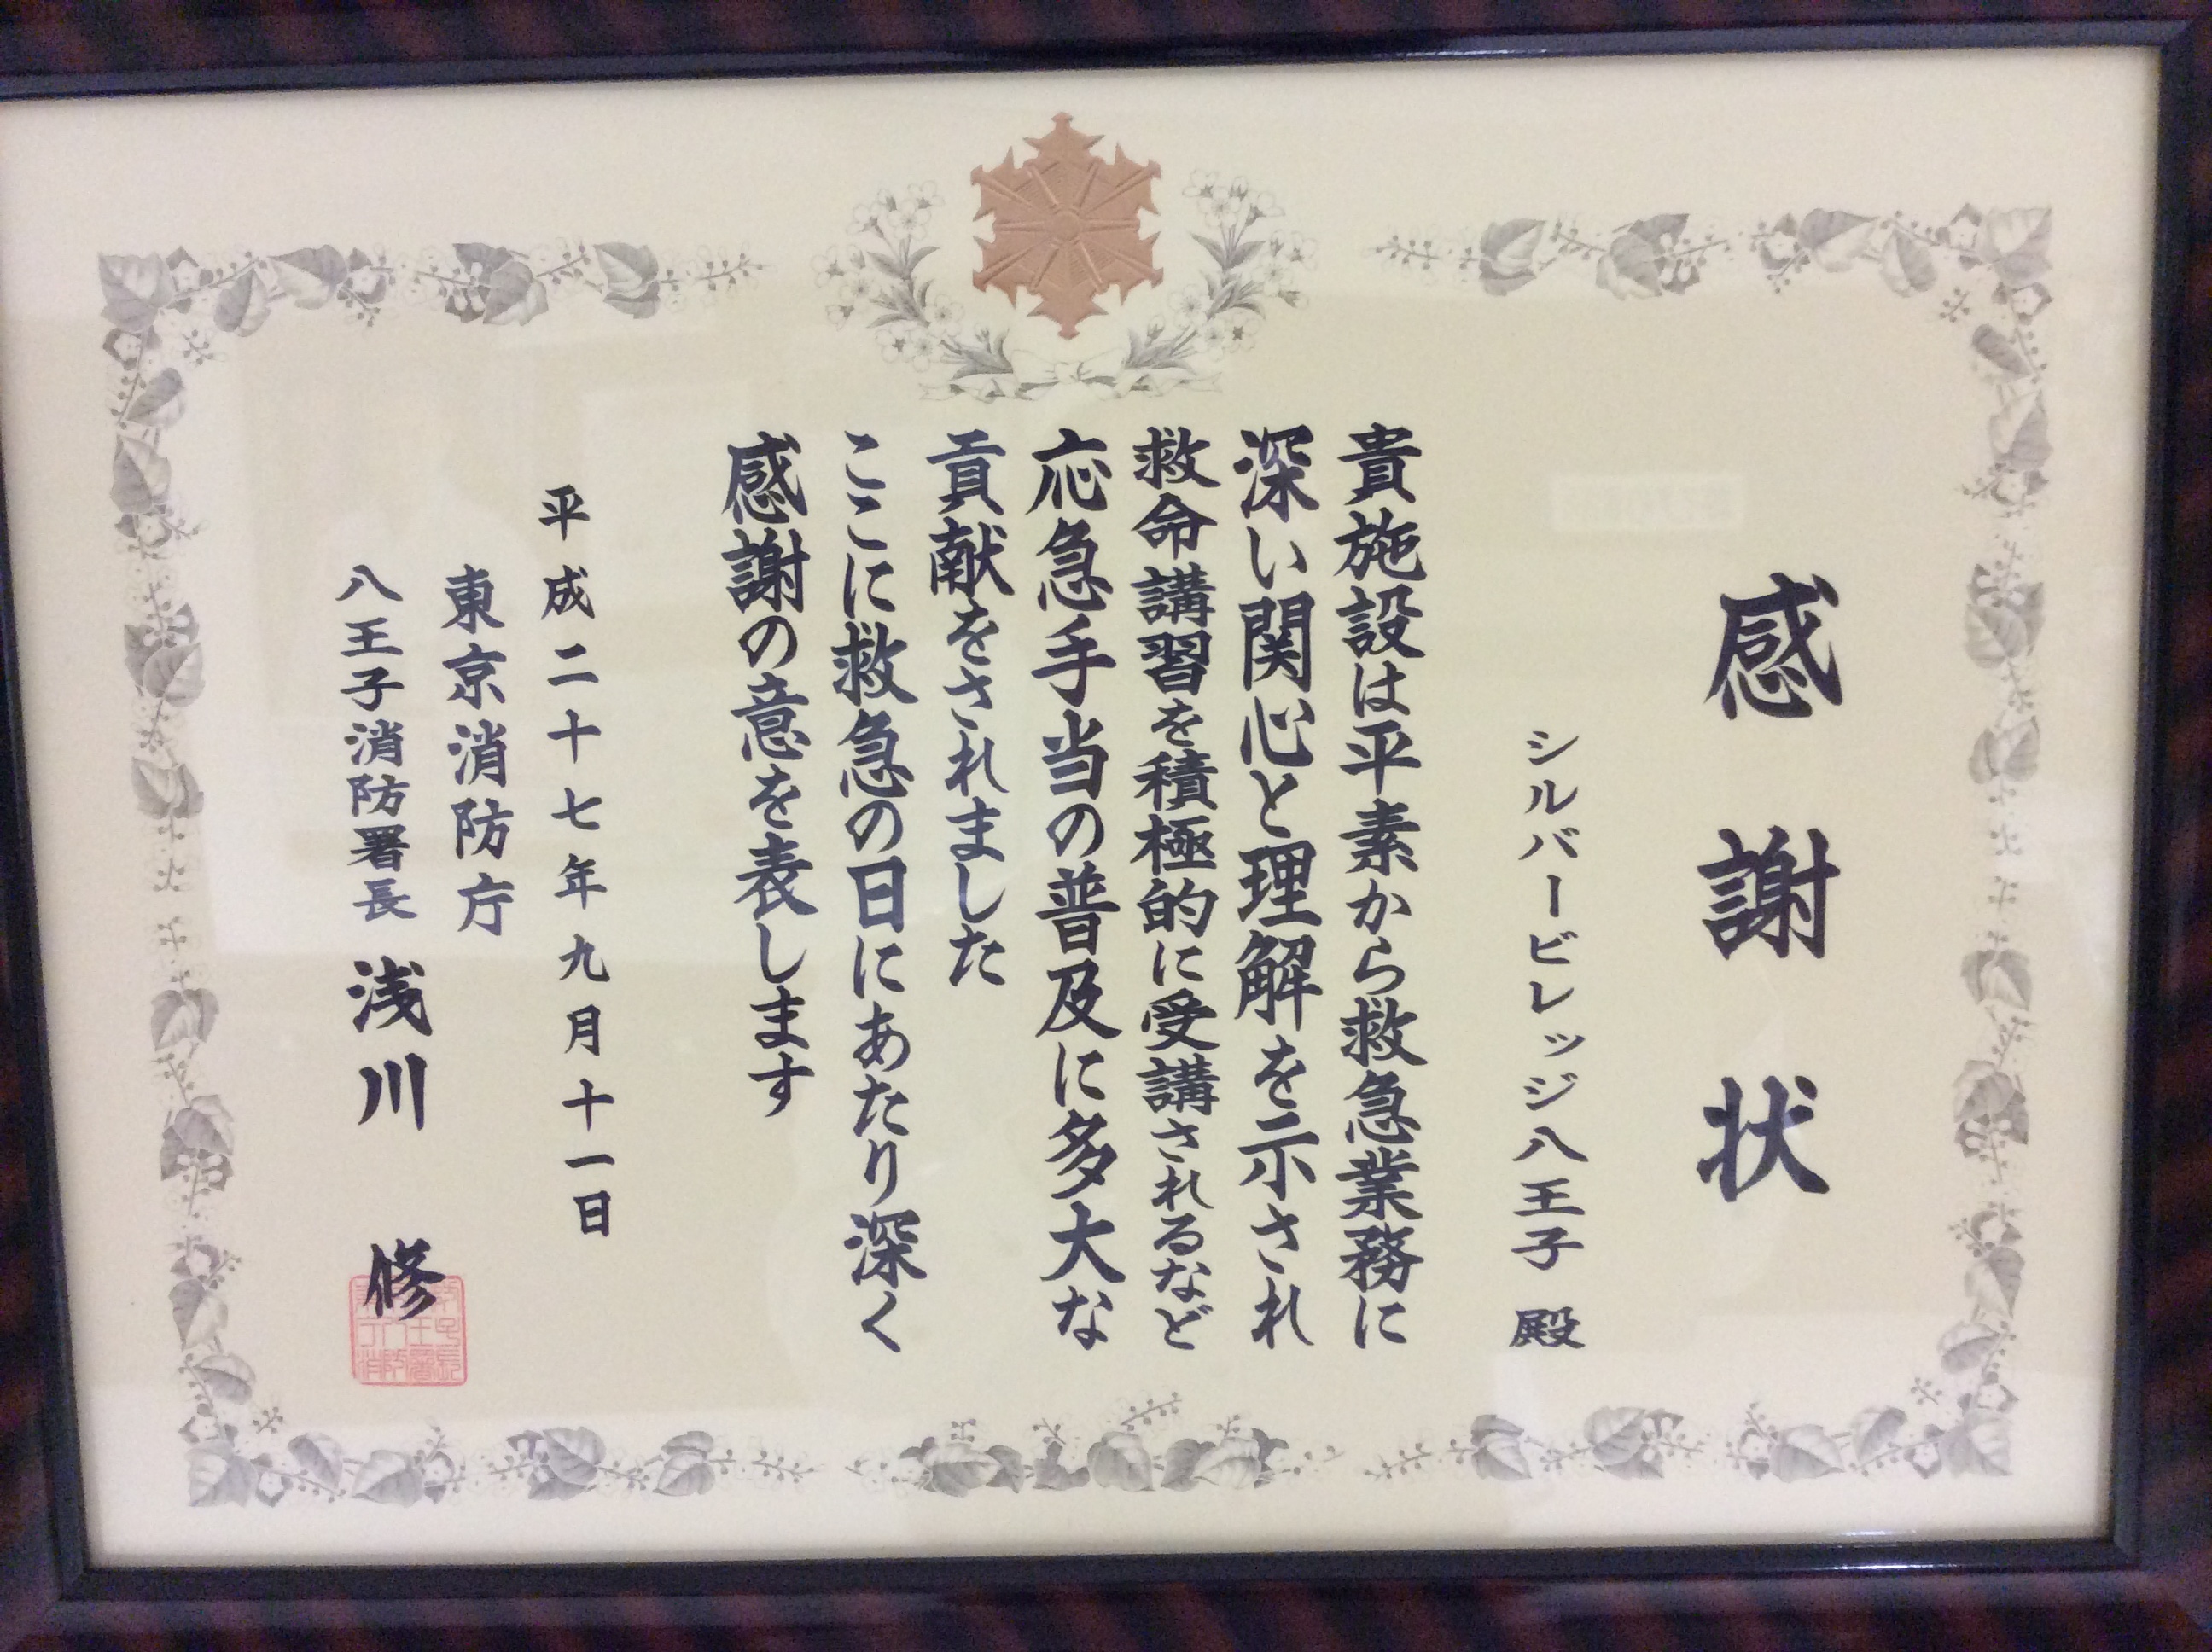 感謝状
シルバービレッジ八王子 殿
貴施設は平素から救急業務に
深い関心と理解を示され
救命講習を積極的に受講されるなど
応急手当の普及に多大な
貢献をされました
ここに救急の日にあたり深く
感謝の意を表します
平成二十七年九月十一日
東京消防庁
八王子消防署長 浅川 修